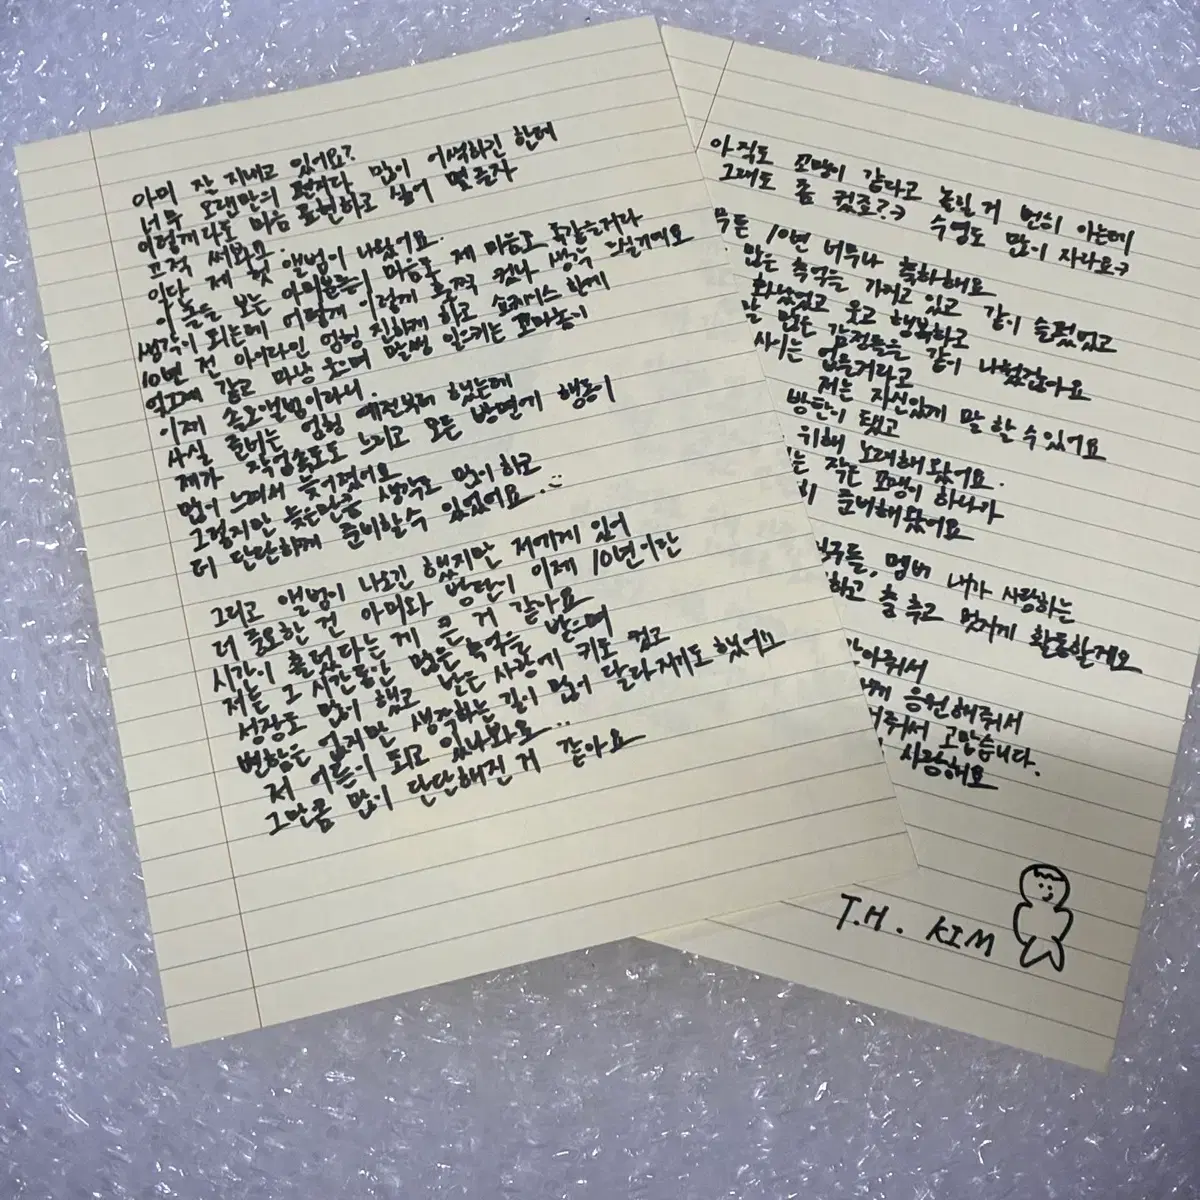 아미 잘 지내고 있어요?
너무 오랜만의 편지라 많이 어색하긴 한데
이렇게라도 마음 표현하고 싶어 몇 글자
끄적 써봐요
일단 제 첫 앨범이 나왔어요.
이 글을 보는 아미분들의 마음도 제 마음도 똑같을거라
생각이 되는데 어떻게 이렇게 훌쩍 컸나 생각 드실거예요
10년 전 아이라인 엄청 진하게 하고 쇼케이스 한게
엊그제 같고 마냥 웃으며 말썽 일으키는 꼬마놈이
이제 솔로앨범이라니.
사실 준비는 엄청 예전부터 했는데
제가 작업속도도 느리고 모든 방면에 행동이
많이 느려서 늦어졌어요
그렇지만 늦은만큼 생각도 많이 하고
더 단단하게 준비할 수 있었어요.
그리고 앨범이 나오긴 했지만 저에게 있어
더 중요한 건 아미와 방탄이 이제 10년이란
시간이 흘렀다는 게 큰 거 같아요
저는 그 시간동안 많은 추억을 받으며
성장도 많이 했고 받은 사랑에 키도 컸고
변함은 없지만 생각하는 길이 많이 달라지기도 했어요
저 어른이 되고 있나봐요..
그만큼 많이 단단해진 거 같아요
아직도 꼬맹이 같다고 놀릴 거 뻔히 아는데
그래도 좀 컸죠?ㅋ 수염도 많이 자라요ㅋ
10년 너무나 축하해요
많은 추억을 가지고 있고 같이 슬펐었고
화났었고 웃고 행복하고
많은 감정들을 같이 나눴잖아요
사이는 없을거라고
저는 자신있게 말 할 수 있어요
방탄이 됐고
위해 노래해왔어요.
작은 꼬맹이 하나가
준비해왔어요
멤버 내가 사랑하는
하고 춤 추고 멋지게 활동할게요
응원해줘서
고맙습니다.
사랑해요
T.H. KIM